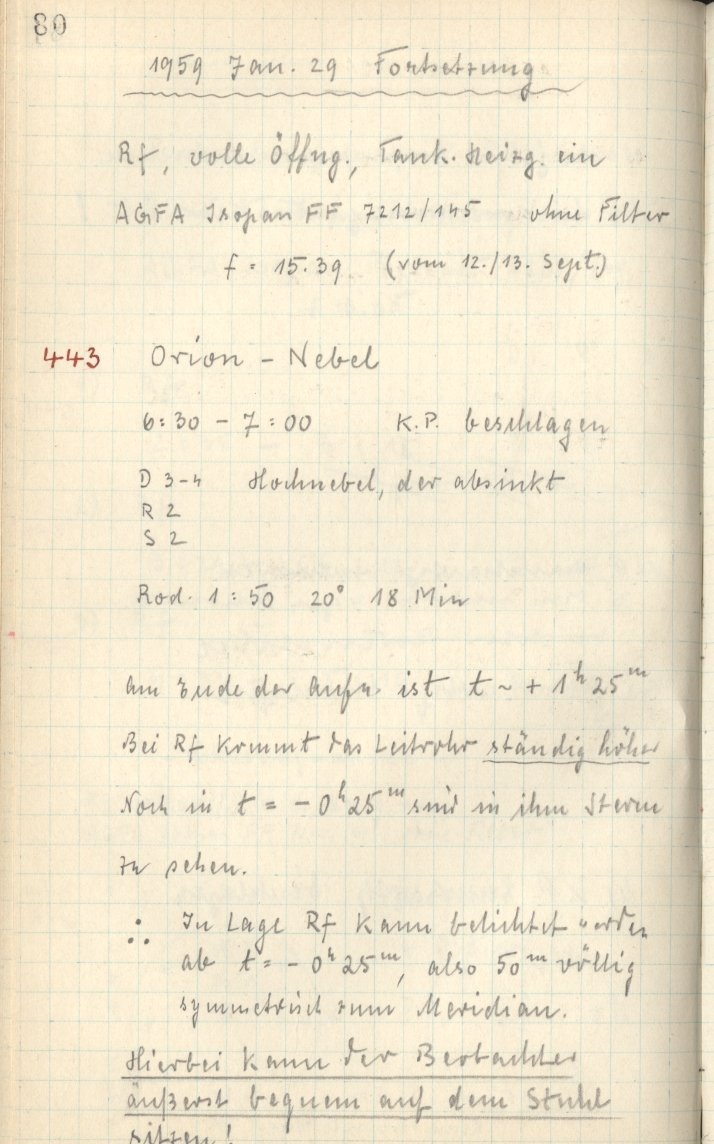 80
1959 Jan. 29 Fortsetzung
Rf, volle Öffng., Tank. Heizg. ein
AGFA Isopan FF 7212/145 ohne Filter
f = 15.39 (vom 12./13. Sept.)
443 Orion - Nebel
6:30 - 7:00 K.P. beschlagen
D 3-4 Hochnebel, der absinkt
R 2
S 2
Rod. 1:50 20° 18 Min
Am Ende der Aufn. ist t ~ + 1ʰ 25ᵐ
Bei Rf kommt das Leitrohr ständig höher
Noch in t = - 0ʰ 25ᵐ sind in ihm Sterne
zu sehen.
∴ In Lage Rf kann belichtet werden
ab t = - 0ʰ 25ᵐ, also 50ᵐ völlig
symmetrisch zum Meridian.
Hierbei kann der Beobachter
äußerst bequem auf dem Stuhl
sitzen!